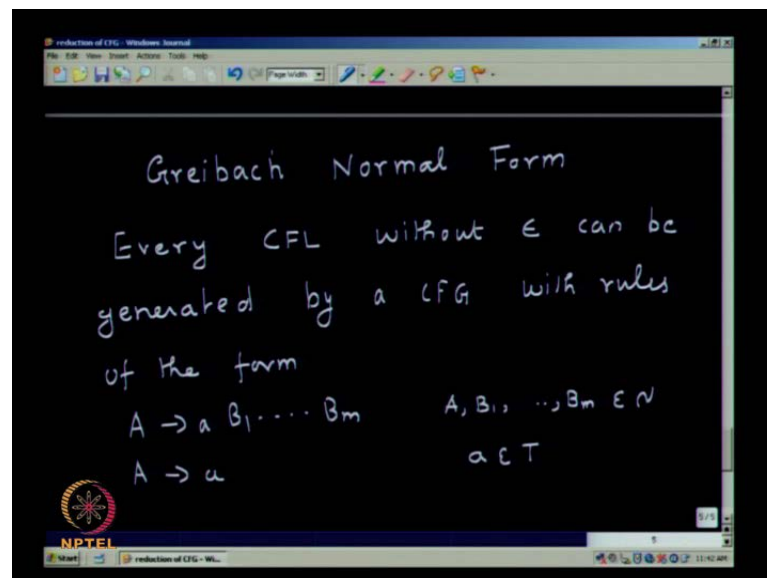 reduction of CFG - Windows Journal
File Edit View Insert Actions Tools Help
Page Width
Greibach Normal Form
Every CFL without ε can be
generated by a CFG with rules
of the form
A -> a B1 ..... Bm A, B1, .., Bm ε N
A -> a a ε T
5/5
NPTEL
5
Start reduction of CFG - Wi... 11:42 AM